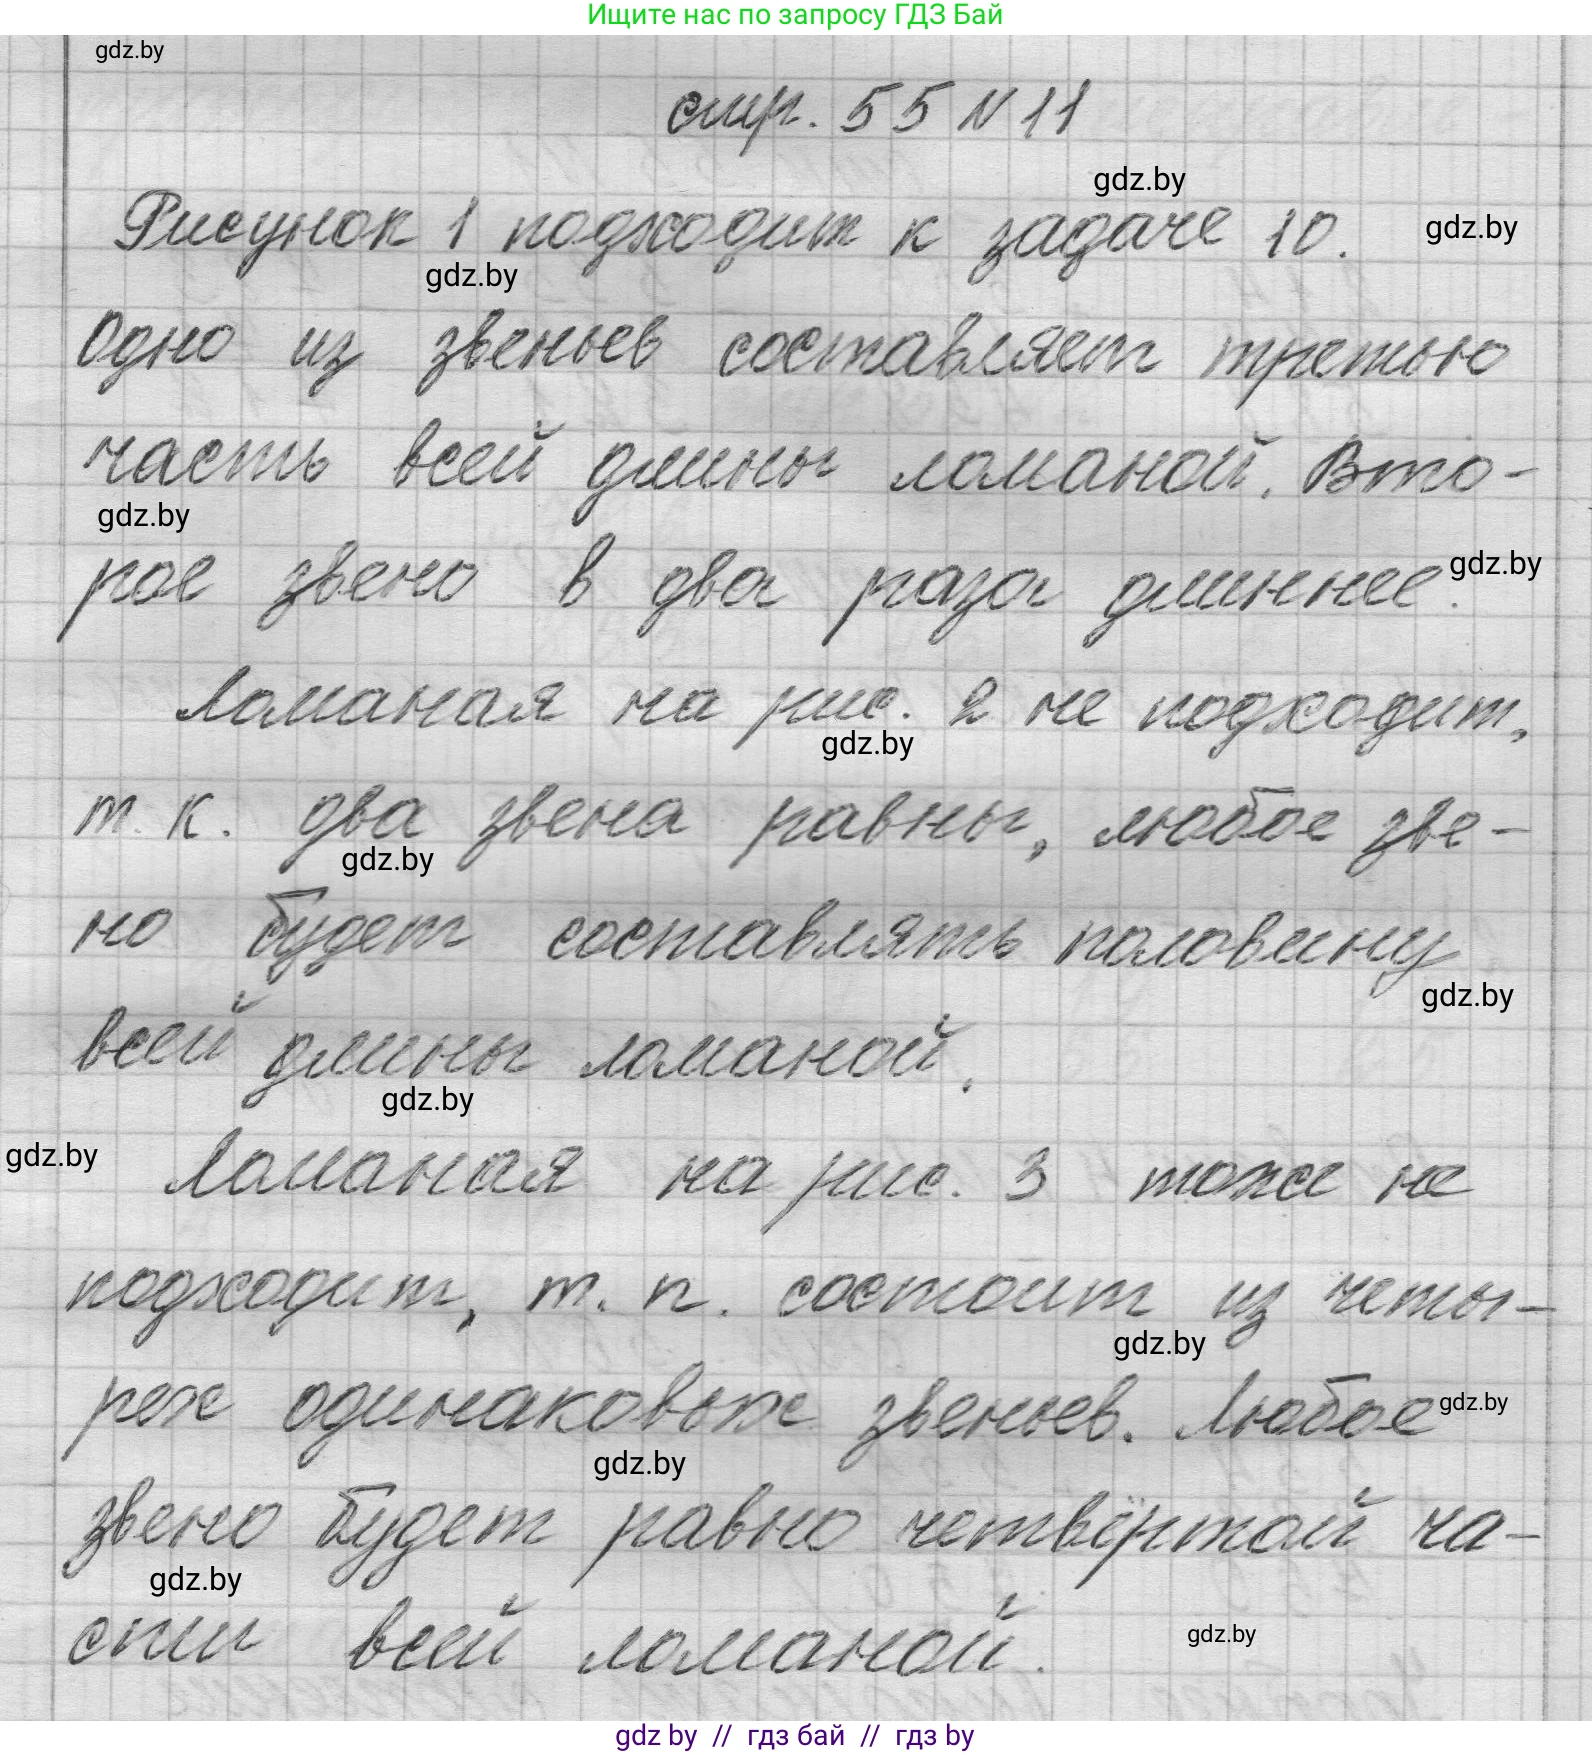 Ищите нас по запросу ГДЗ Бай
gdz.by
стр. 55 N 11
gdz.by
Рисунок 1 подходит к задаче 10.
gdz.by
gdz.by
Одно из звеньев составляет третью
часть всей длины ломаной. Вто-
gdz.by
рое звено в два раза длиннее.
gdz.by
Ломаная на рис. 2 не подходит,
gdz.by
т. к. два звена равны, любое зве-
gdz.by
но будет составлять половину
gdz.by
всей длины ломаной.
gdz.by
gdz.by
Ломаная на рис. 3 тоже не
подходит, т. п. состоит из четы-
gdz.by
рех одинаковых звеньев. Любое
gdz.by
gdz.by
звено будет равно четвёртой ча-
gdz.by
сти всей ломаной.
gdz.by
gdz by // гдз бай // гдз by